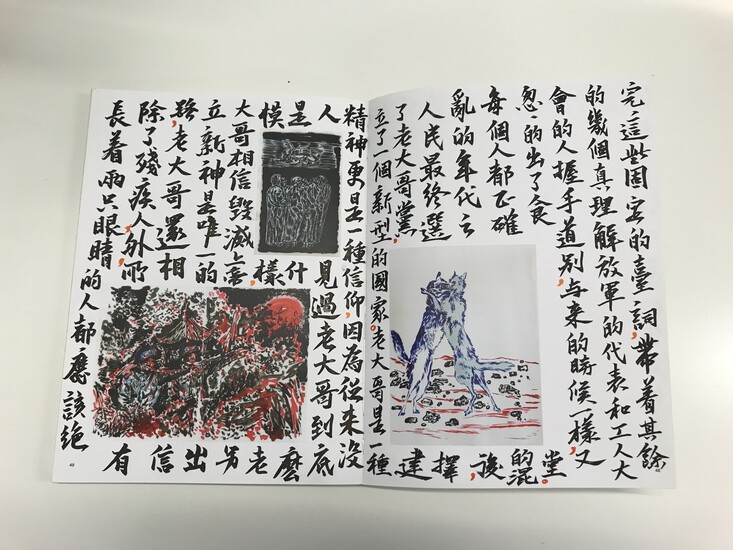 完這些固定的臺詞，帶着其餘
的幾個真理解放軍的代表和工人大
會的人握手道別，与来的時候一樣，又
忽〻的出了食堂。
每個人都正確的混
亂的年代之後，
人民最終選擇
了老大哥黨，建
立了一個新型的國家。老大哥是一種
精神更是一種信仰，因為從来沒
人見過老大哥到底
是什麼
模樣，老
大哥相信毀滅上帝，另
立新神是唯一的出
路，老大哥還相信
除了殘疾人外，所有
長着兩只眼睛的人都應該絕